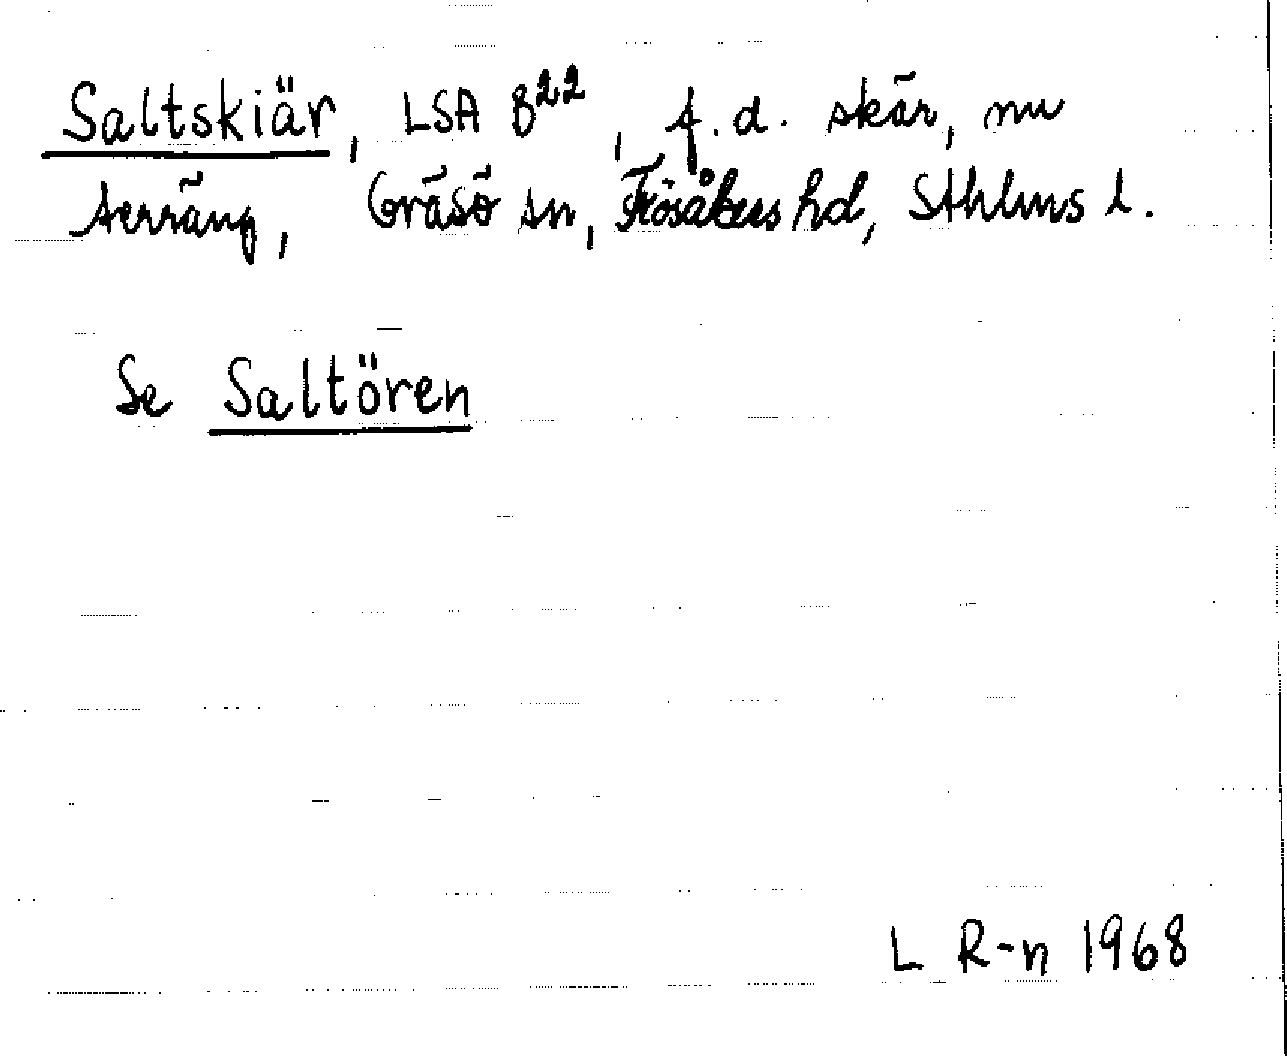 Saltskiär, LSA B²², f.d. skär, nu
terräng, Gräsö sn, Frösåkers hd, Sthlms l.
Se Saltören
L R-n 1968